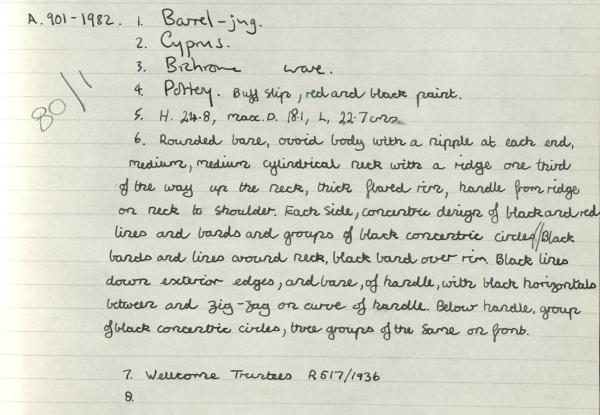 A.901-1982. 1. Barrel-jug.
2. Cyprus.
3. Bichrome ware.
4. Pottery. Buff slip, red and black paint.
80/1
5. H. 24.8, max. D. 18.1, L, 22.7cms
6. Rounded base, ovoid body with a nipple at each end,
medium, medium cylindrical neck with a ridge one third
of the way up the neck, thick flared rim, handle from ridge
on neck to shoulder. Each side, concentric design of black and red
lines and bands and groups of black concentric circles//Black
bands and lines around neck, black band over rim. Black lines
down exterior edges, and base, of handle, with black horizontals
between and zig-zag on curve of handle. Below handle, group
of black concentric circles, three groups of the same on front.
7. Wellcome Trustees R517/1936
8.